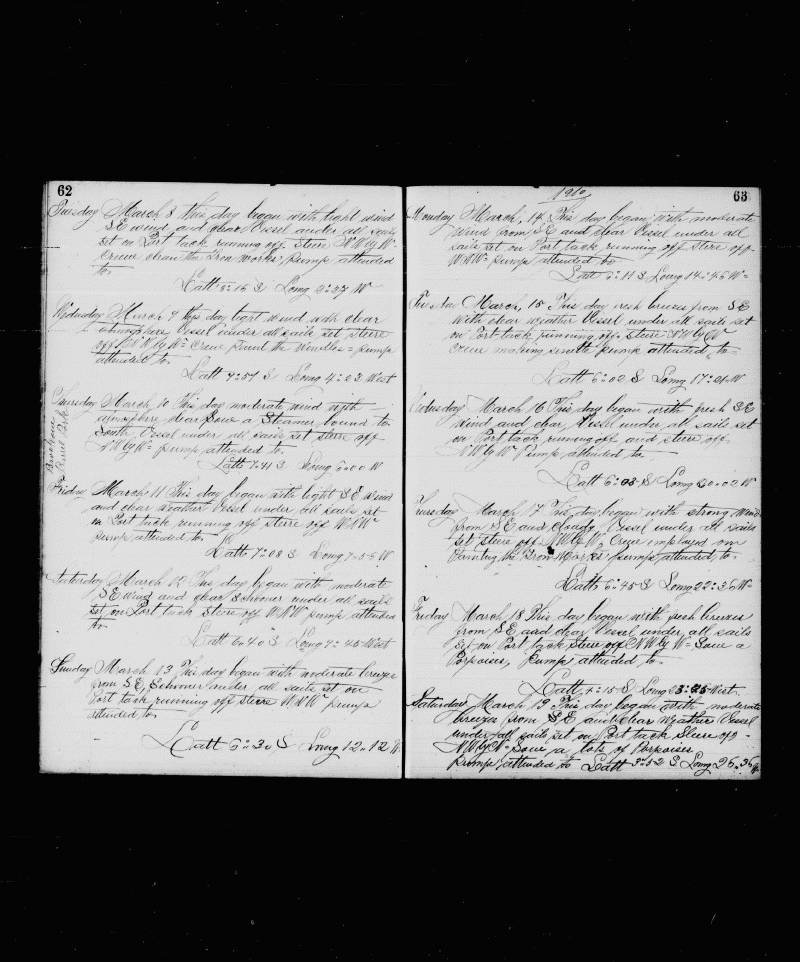 62
Tuesday March 8 this day began with light wind
SE wind and clear Vessel under all sails
set on Port tack running off. Steere NW by W
Crew clean the Iron Works, pump attended
to
Latt 8=15 S Long 2=27 W
Wednesday March 9 this day light wind with clear
atmosphere Vessel under all sails set steere
off NW by W= Crew paint the Windlass= pump
attended to
Latt 7=57 S Long 4=03 West
Thursday March 10 this day moderate wind with
atmosphere clear Saw a Steamer bound to
South Vessel under all sails set steere off
NW by W= pump attended to
Latt 7=41 S Long 6=00 W
Friday March 11 This day began with light SE Wind
and clear weather Vessel under all sails set
on Port tack running off sterre off WNW=
pump attended to.
Latt 7=08 S Long 7=55 W
Saturday March 12 This day began with moderate
SE wind and clear Schooner under all sails
set on Port tack Steere off WNW pump attended
to
Latt 6=40 S Long 9=45 West
Sunday March 13 This day began with moderate breezes
from SE, Schooner under all sails set on
Port tack running off steere WNW pump
attended to
Latt 6=30 S Long 12=12 W
1910
63
Monday March, 14 This day began with moderate
wind from SE and clear Vessel under all
sails set on Port tack running off stere off
WNW= pump attended to
Latt 6=11 S Long 14=45 W=
Tuesday March, 15 This day resh breezes from SE
With clear weather Vessel under all sails set
on Port tack running off steere NW by W
Crew making pump attended to=
Latt 6=02 S Long 17=21 W
Wednesday March 16 This day began with fresh SE
wind and clear, Vessel under all sails set
on Port tack running off and steere off
NW by W Pump attended to
Latt 6=03 S Long 20=02 W
Thursday March 17 This day began with strong wind
from SE and cloudy Vessel under all sails
set steere off NW by W, Crew imployed on
Painting the Iron Works pump attended, to=
Latt 6=45 S Long 22=36 W=
Friday March 18 This day began with fresh breezes
from SE and clear Vessel under all sails
set on Port tack steere off NW by W= Saw a
Porpoises, Pump attended to.
Latt 4=15 S Long 23=25 West
Saturday March 19 This day began with moderate
breezes from SE and clear weather Vessel
under all sails set on Port tack Steere off=
NW by W= Saw a lots of Porpoises
pump attended to Latt 3=52 S Long 26=36 W